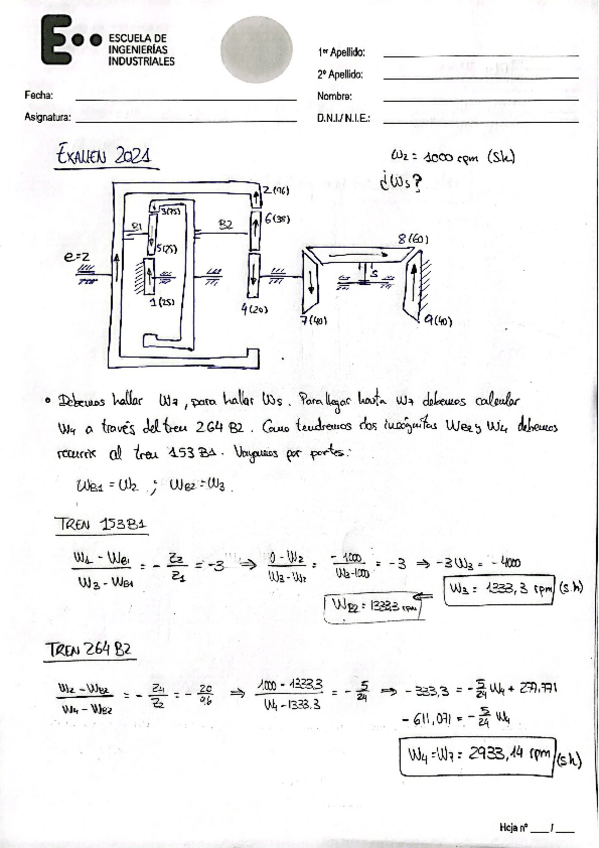 ESCUELA DE
INGENIERÍAS
INDUSTRIALES
1er Apellido:
2º Apellido:
Fecha:
Nombre:
Asignatura:
D.N.I./ N.I.E.:
EXAMEN 2021
W2 = 1000 rpm (S.h)
¿WS?
2(96)
3(75)
B1
B2
6(38)
5(25)
e=2
1(25)
4(20)
8(60)
S
7(40)
9(40)
• Debemos hallar W7, para hallar WS. Para llegar hasta W7 debemos calcular
W4 a través del tren 264B2. Como tendremos dos incógnitas WB2 y W4 debemos
recurrir al tren 153B1. Vayamos por partes:
WB1 = W2 ; WB2 = W3.
TREN 153B1
W1 - WB1 / W3 - WB1 = - Z3 / Z1 = -3 ⇒ 0 - W2 / W3 - W2 = - 1000 / W3-1000 = -3 ⇒ -3W3 = -4000
W3 = 1333,3 rpm (s.h)
WB2 = 1333,3 rpm ⇐
TREN 264B2
W2 - WB2 / W4 - WB2 = - Z4 / Z2 = - 20 / 96 ⇒ 1000 - 1333,3 / W4 - 1333,3 = - 5/24 ⇒ -333,3 = - 5/24 W4 + 277,771
-611,071 = - 5/24 W4
W4 = W7 = 2933,14 rpm (s.h)
Hoja nº ___/___